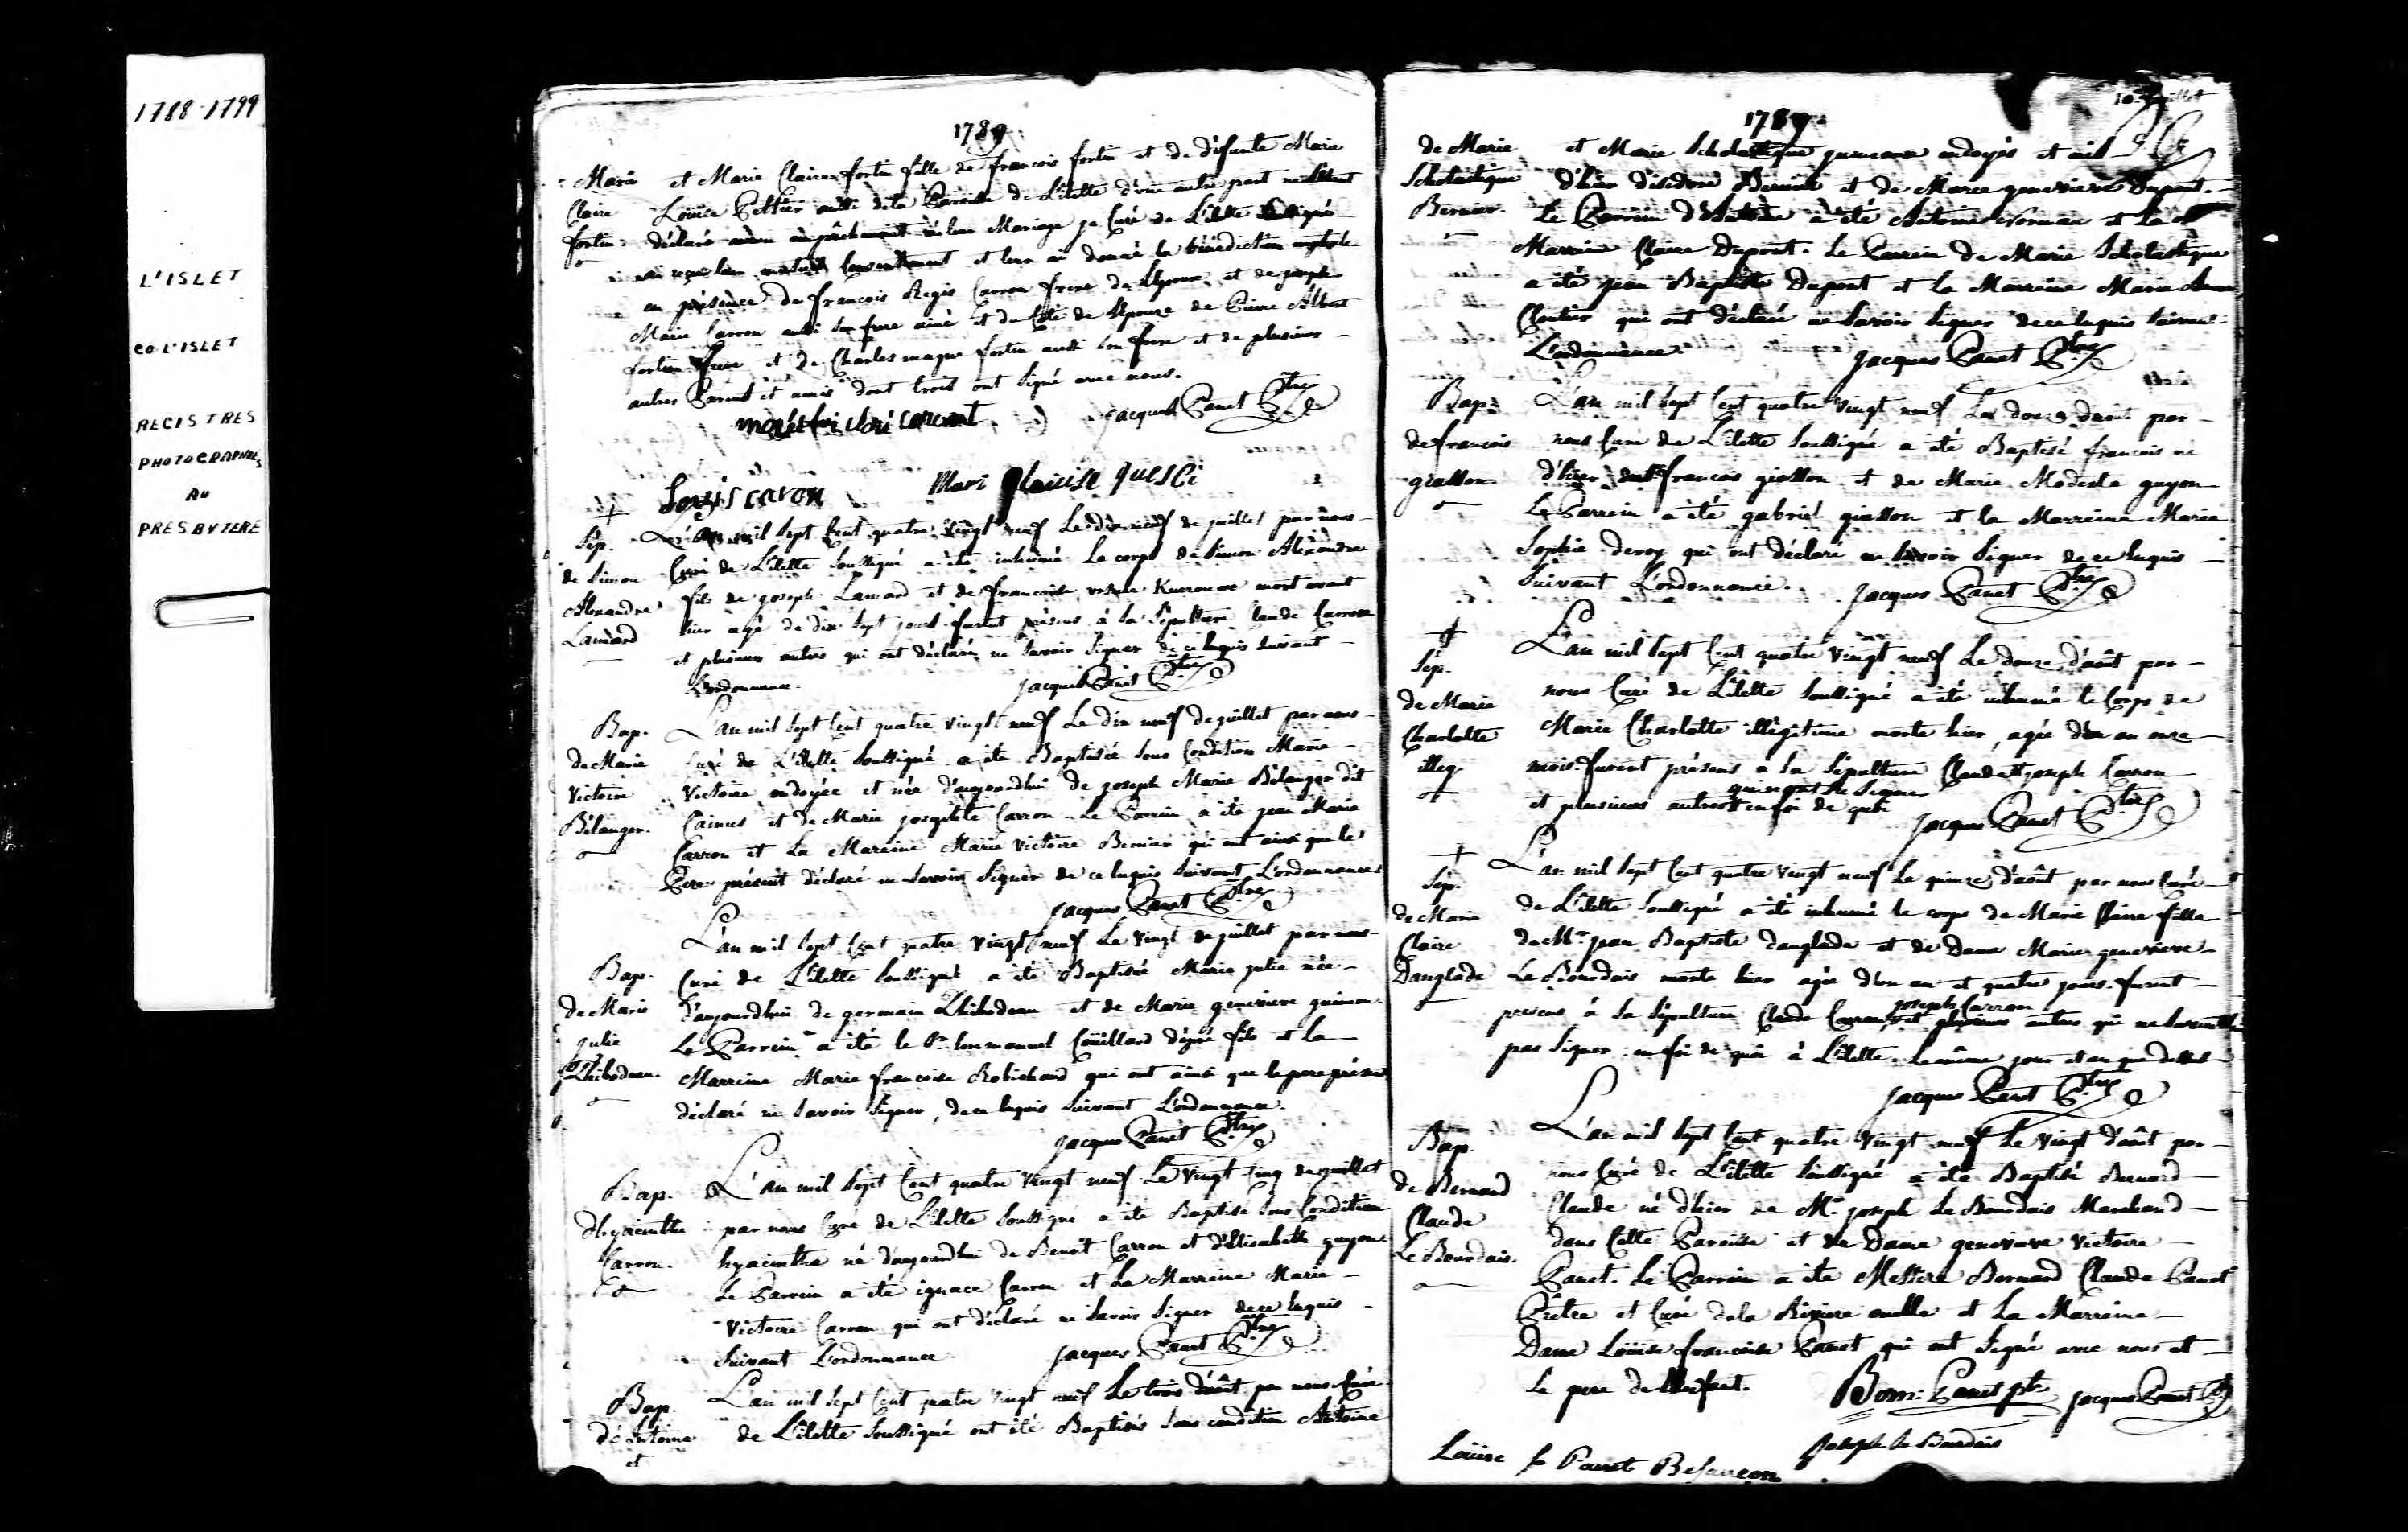 1788-1799
L'ISLET
CO. L'ISLET
REGISTRES
PHOTOGRAPHIES
AU
PRESBYTERE
1789.
Marie
Claire
fortin.
et Marie Claire fortin fille de francois fortin et de défunte Marie
Louise Peltier aussi de la Paroisse de L'ilette d'une autre part
déclaré aucun empêchement leur Mariage je Curé de L'ilette Soussigné
reçu leur mutuel Consentement et leur ai donné la bénédiction nuptiale
en présence de francois Regis Carron frere de L'Epoux et de joseph
Marie Carron aussi Son frere ainé et du Coté de L'Epouze de Pierre Albert
fortin frere et de Charles magne fortin aussi Son frere et de plusieurs
autres Parents et amis dont trois ont Signé avec nous.
jacques Panet Ptre
Louis caron
†
Sép.
de Simon
Alexandre
Lamard
L'an mil Sept Cent quatre vingt neuf Le dix neuf de juillet par nous
Curé de L'ilette Soussigné a été inhumé Le corps de Simon Alexandre
fils de joseph Lamard et de francoise mort avant
hier agé de dix Sept jours furent présens à Sa Sépulture Claude Carron
et plusieurs autres qui ont déclaré ne Savoir Signer de ce Enquis Suivant
L'ordonnance.
jacques Panet Ptre
Bap.
de Marie
Victoire
Bélanger.
L'an mil Sept Cent quatre vingt neuf Le dix neuf de juillet par nous
Curé de L'ilette Soussigné a été Baptisée Sous Condition Marie
Victoire ondoyée et née d'aujourdhui de joseph Marie Bélanger dit
et de Marie josephte Carron. Le Parrein a été jean Marie
Carron et La Mareine Marie Victoire Bernier qui ont ainsi que le
Pere présent déclaré ne Savoir Signer de ce Enquis Suivant L'ordonnance
jacques Panet Ptre
Bap.
de Marie
julie
Thibodeau.
L'an mil Sept Cent quatre vingt neuf Le Vingt de juillet par nous
Curé de L'ilette Soussigné a été Baptisée Marie julie née
d'aujourdhui de germain Thibodeau et de Marie genevieve guimon
Le Parrein a été le Sr Emmanuel Coüillard dépré fils et La
Marreine Marie francoise Robichaud qui ont ainsi que le pere présent
déclaré ne Savoir Signer, de ce Enquis Suivant L'ordonnance.
jacques Panet Ptre
Bap.
dhyacinthe
Carron.
L'an mil Sept Cent quatre Vingt neuf Le Vingt cinq de juillet
par nous Curé de L'ilette Soussigné a été Baptisé Sous Condition
hyacinthe né d'aujourdhui de Benoît Carron et d'Elisabeth guyon
Le Parrein a été ignace Carron et La Marreine Marie
Victoire Carron qui ont déclaré ne Savoir Signer de ce Enquis
Suivant L'ordonnance.
jacques Panet Ptre
Bap.
de Antoine
et
L'an mil Sept Cent quatre Vingt neuf Le trois d'août par nous Curé
de L'ilette Soussigné ont été Baptisés Sous condition Antoine
10e juillet
1789.
de Marie
Scholastique
Bernier.
et Marie Scholastique jumeaux ondoyés et nés
d'hier d'isidore Bernier et de Marie genevieve Dupont.
Le Parrein d'Antoine a été Antoine Norman et La
Marreine Claire Dupont. Le Parrein de Marie Scholastique
a été jean Baptiste Dupont et La Marreine Marie Anne
Cloutier qui ont déclaré ne Savoir Signer de ce Enquis Suivant
L'ordonnance.
jacques Panet Ptre
Bap.
de francois
giasson
L'an mil Sept Cent quatre Vingt neuf Le douze d'août par
nous Curé de L'ilette Soussigné a été Baptisé francois né
d'hier de francois giasson et de Marie Modeste guyon
Le Parrein a été gabriel giasson et la Marreine Marie
Sophie deroy qui ont déclaré ne Savoir Signer de ce Enquis
Suivant L'ordonnance.
jacques Panet Ptre
†
Sép.
de Marie
Charlotte
illeg.
L'an mil Sept Cent quatre Vingt neuf Le douze d'août par
nous Curé de L'ilette Soussigné a été inhumé le Corps de
Marie Charlotte illégitime morte hier, agée d'un an onze
mois furent présens à Sa Sépulture Claude et joseph Carron
et plusieurs autres en foi de quoi
jacques Panet Ptre
†
Sép.
de Marie
Claire
Danglade
L'an mil Sept Cent quatre Vingt neuf Le quinze d'août par nous Curé
de L'ilette Soussigné a été inhumé le corps de Marie Claire fille
de Mr jean Baptiste danglade et de Dame Marie genevieve
Le Bourdais morte hier agée d'un an et quatre jours furent
joseph Carron
présens à Sa Sépulture Claude Carron et autres qui ne Savent
pas Signer en foi de quoi à L'ilette Le même jour et an que dessus
jacques Panet Ptre
Bap.
de Bernard
Claude
Le Bourdais.
L'an mil Sept Cent quatre Vingt neuf Le Vingt d'août par
nous Curé de L'ilette Soussigné a été Baptisé Bernard
Claude né d'hier de Mr joseph Le Bourdais Marchand
dans Cette Paroisse et de Dame genevieve Victoire
Panet. Le Parrein a été Messire Bernard Claude Panet
Prêtre et Curé de la Riviere ouelle et La Marreine
Dame Loüise francoise Panet qui ont Signé avec nous et
Le pere de L'enfant.
Bern. Panet ptr
jacques Panet Ptre
joseph le Bourdais
Loüise f Panet Besançon